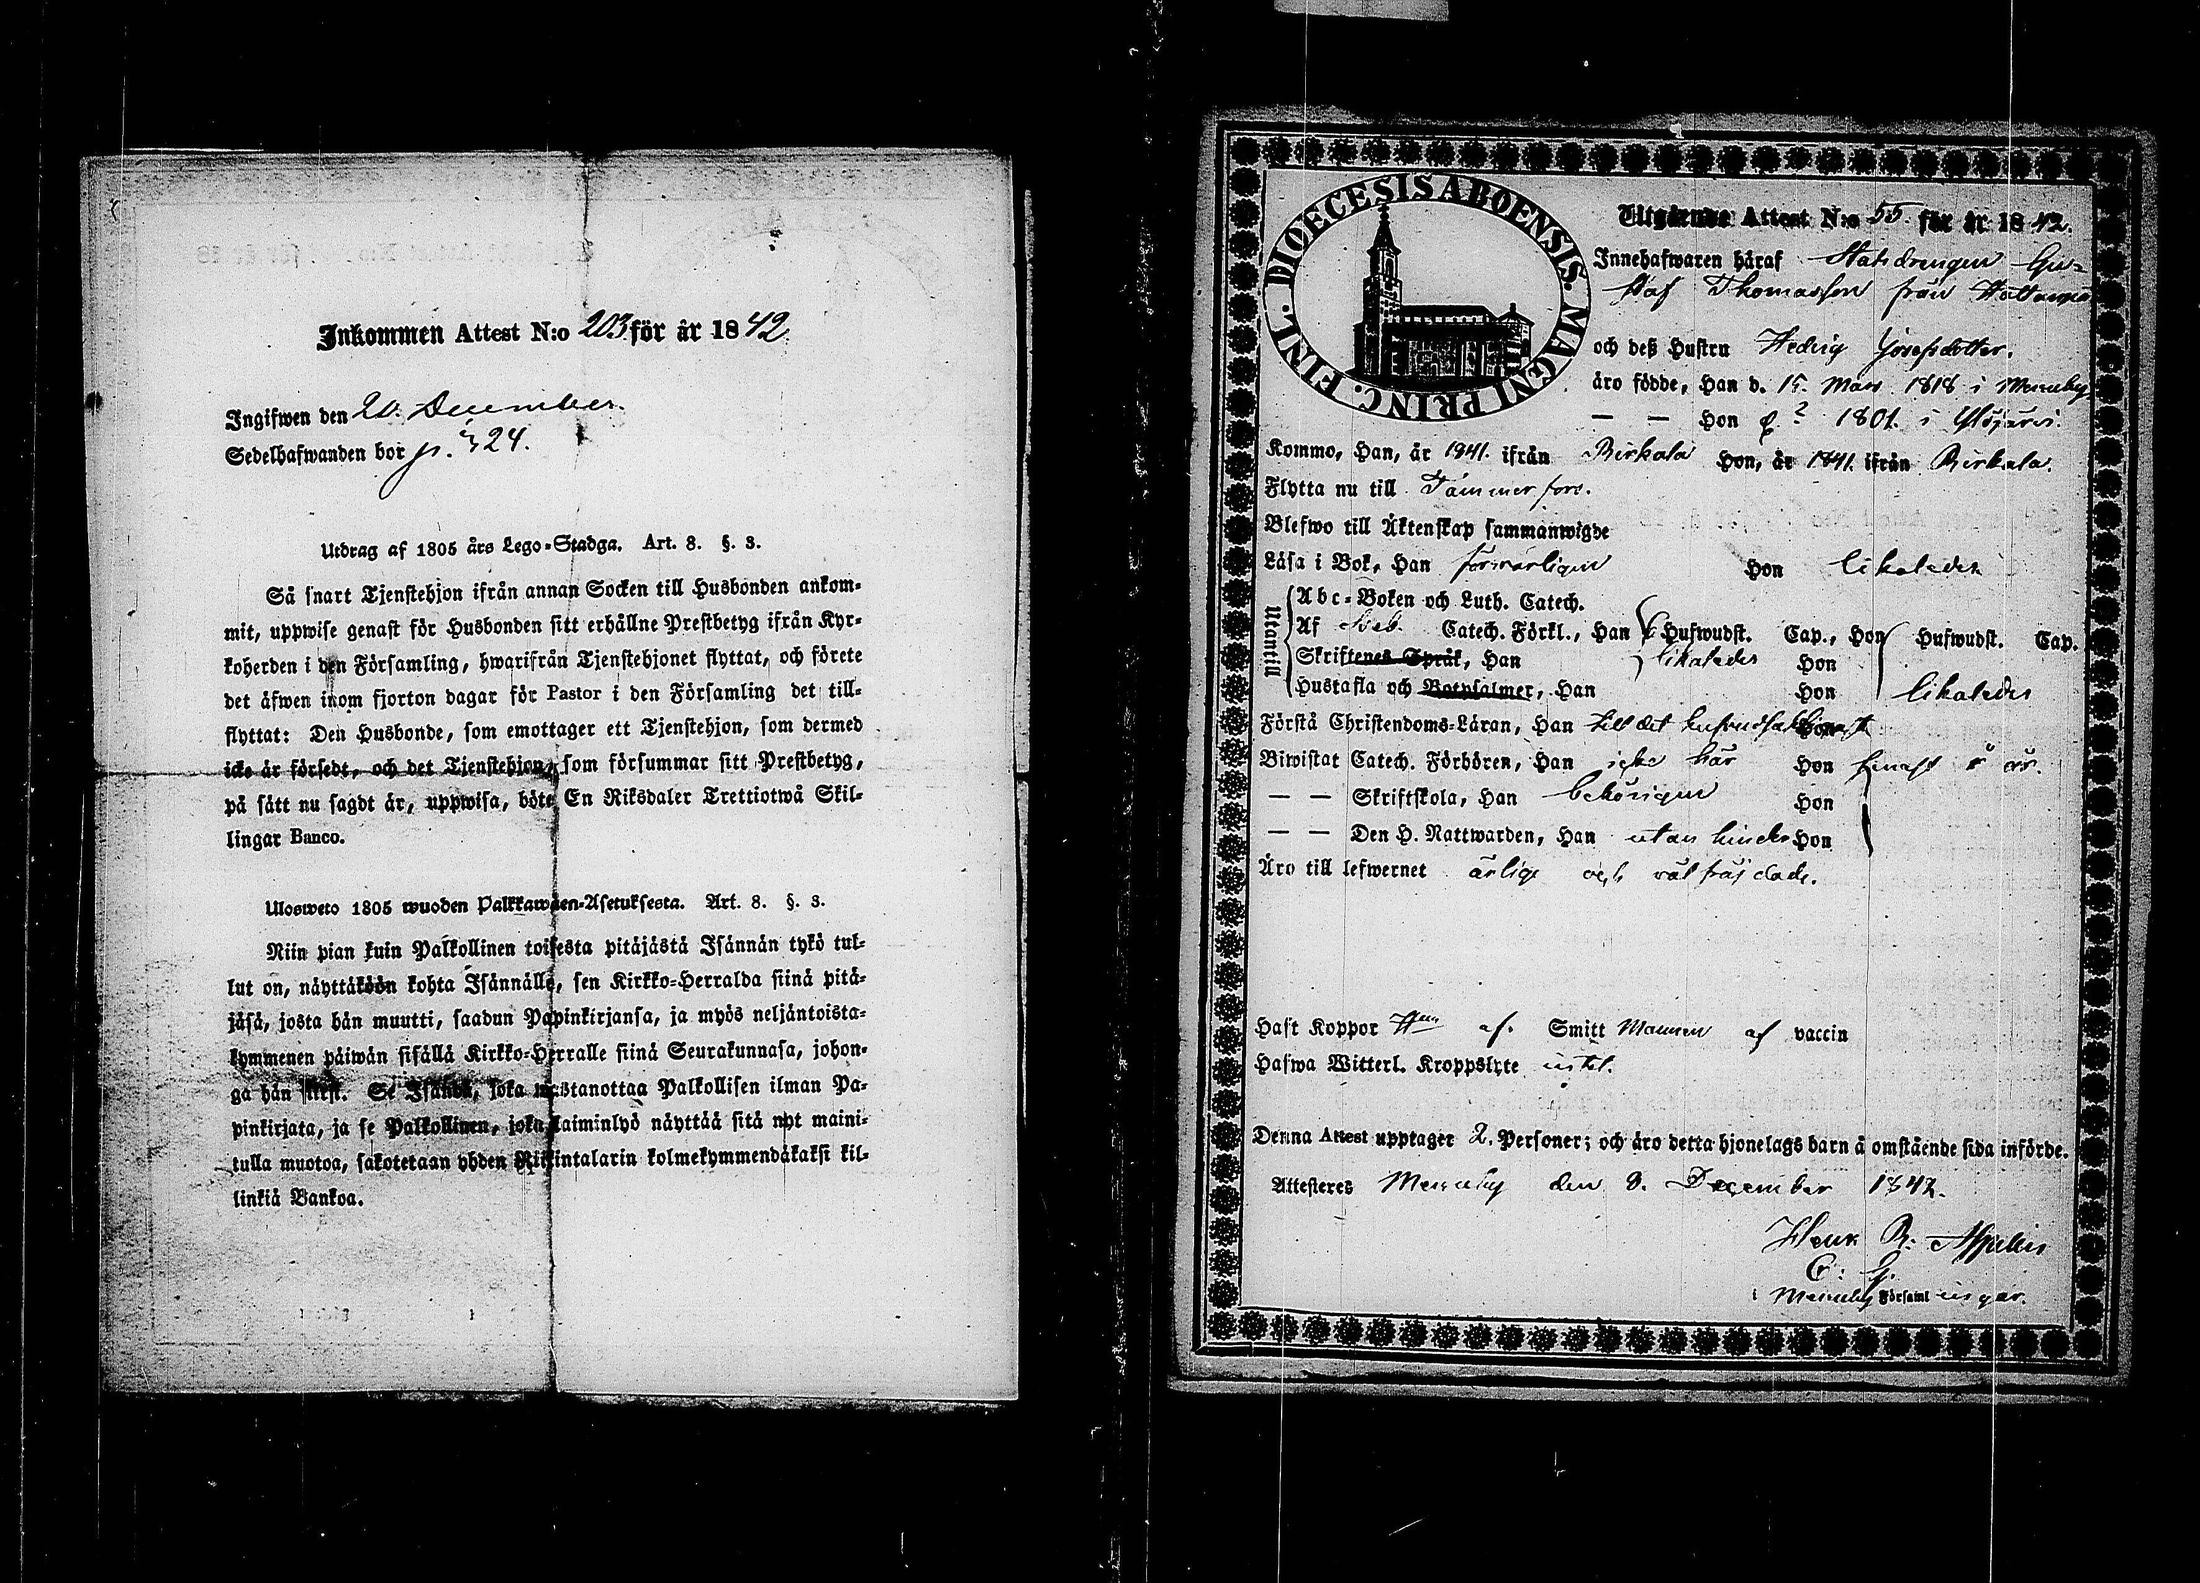 Inkommen Attest N:o 203 för år 1842.
Ingifwen den 20. December.
Sedelhafwanden bor p. 324.
Utdrag af 1805 års Lego-Stadga. Art. 8. §. 3.
Så snart Tjenstehjon ifrån annan Socken till Husbonden ankom-
mit, uppwise genast för Husbonden sitt erhållne Prestbetyg ifrån Kyr-
koherden i den Församling, hwarifrån Tjenstehjonet flyttat, och förete
det äfwen inom fjorton dagar för Pastor i den Församling det till-
flyttat: Den Husbonde, som emottager ett Tjenstehjon, som dermed
icke är försedt, och det Tjenstehjon, som försummar sitt Prestbetyg,
på sätt nu sagdt är, uppwisa, böte En Riksdaler Trettiotwå Skil-
lingar Banco.
Ulosweto 1805 wuoden Palkkawäen-Asetuksesta. Art. 8. §. 3.
Niin pian kuin Palkollinen toisesta pitäjästä Isännän tykö tul-
lut on, näyttäköön kohta Isännälle, sen Kirkko-Herralda siinä pitä-
jäsä, josta hän muutti, saadun Papinkirjansa, ja myös neljäntoista-
kymmenen päiwän sisällä Kirkko-Herralle siinä Seurakunnasa, johon-
ga hän siirst. Se Isändä, joka wastanottaa Palkollisen ilman Pa-
pinkirjata, ja se Palkollinen, joka laiminlyö näyttää sitä nyt maini-
tulla muotoa, sakotetaan yhden Riikintalarin kolmekymmendäkaksi kil-
linkiä Bankoa.
DIOECESIS ABOENSIS. MAGNI PRINC. FINL.
Utgående Attest N:o 55 för år 1842.
Innehafwaren häraf Statsdrengen Gu-
staf Thomasson från
och deß Hustru Hedvig Josefsdotter.
äro födde, Han d. 15. Mars 1818 i Messuby
— — Hon d. ? 1801. i Ylöjärvi.
Kommo, Han, år 1841. ifrån Birkala Hon, år 1841. ifrån Birkala.
Flytta nu till Tammerfors.
Blefwo till Äktenskap sammanwigde
Läsa i Bok, Han försvarligen Hon likaledes
Utantill
Abc-Boken och Luth. Catech.
Af Catech. Förkl., Han Hufwudst. Cap., Hon Hufwudst. Cap.
Skriftenes Språk, Han likaledes Hon
Hustafla och Botpsalmer, Han Hon likaledes
Förstå Christendoms-Läran, Han till det hufvudsakligaste Hon
Biwistat Catech. Förhören, Han icke här Hon år.
— — Skriftskola, Han behörigen Hon
— — Den H. Nattwarden, Han utan hinder Hon
Äro till lefwernet ärlige och väl fräjdade.
Haft Koppor Hon af. Smitt Mannen af vaccin
Hafwa Witterl. Kroppslyte intet.
Denna Attest upptager 2. Personer; och äro detta hjonelags barn å omstående sida införde.
Attesteres Messuby den 8. December 1842.
Henr. R:
i Messuby Församl